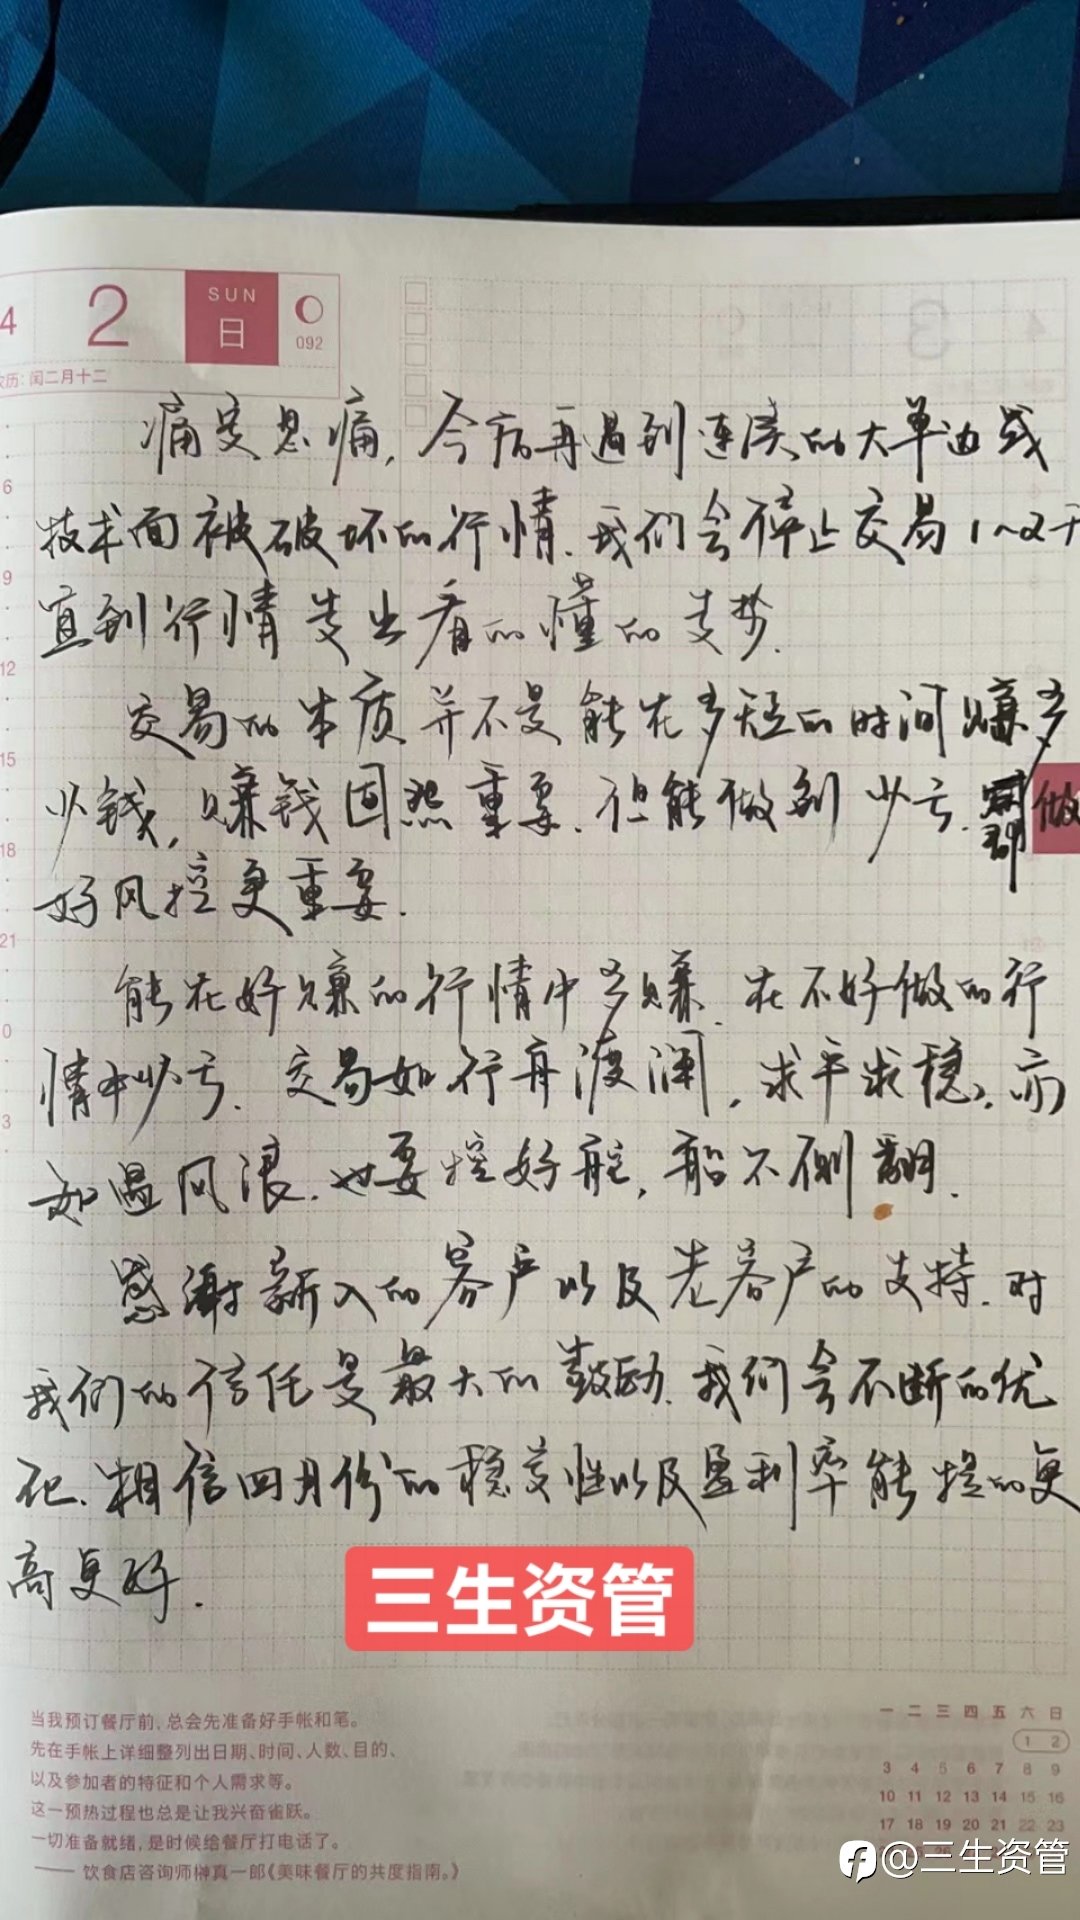 4 2 SUN 日 092
农历:闰二月十二
痛定思痛,今后再遇到连续的大单边或
技术面被破坏的行情.我们会停止交易1~2天
直到行情走出看的懂的走势.
交易的本质并不是能在多短的时间赚多
少钱,赚钱固然重要.但能做到少亏.做
好风控更重要.
能在好赚的行情中多赚.在不好做的行
情中少亏.交易如行舟渡澜,求平求稳.亦
如遇风浪.也要控好舵,船不侧翻.
感谢新入的客户以及老客户的支持.对
我们的信任是最大的鼓励.我们会不断的优
化.相信四月份的稳定性以及盈利率能提的更
高更好.
三生资管
当我预订餐厅前,总会先准备好手帐和笔。
先在手帐上详细整列出日期、时间、人数、目的、
以及参加者的特征和个人需求等。
这一预热过程也总是让我兴奋雀跃。
一切准备就绪,是时候给餐厅打电话了。
—— 饮食店咨询师榊真一郎《美味餐厅的共度指南。》
6
9
12
15
18
21
0
3
一 二 三 四 五 六 日
1 2
3 4 5 6 7 8 9
10 11 12 13 14 15 16
17 18 19 20 21 22 23
@三生资管